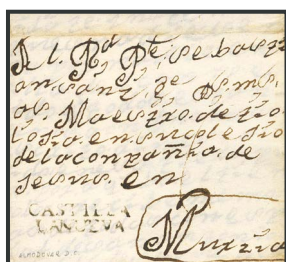 Al. Rd. Pe. sebasti
an sanz. De sms.
os. Maestro. de teo.
losia. en. su colesio
de la conpañia. de
Jesus. en
CASTILLA
LANUEVA
Murzia
ALMODOVAR D.C.